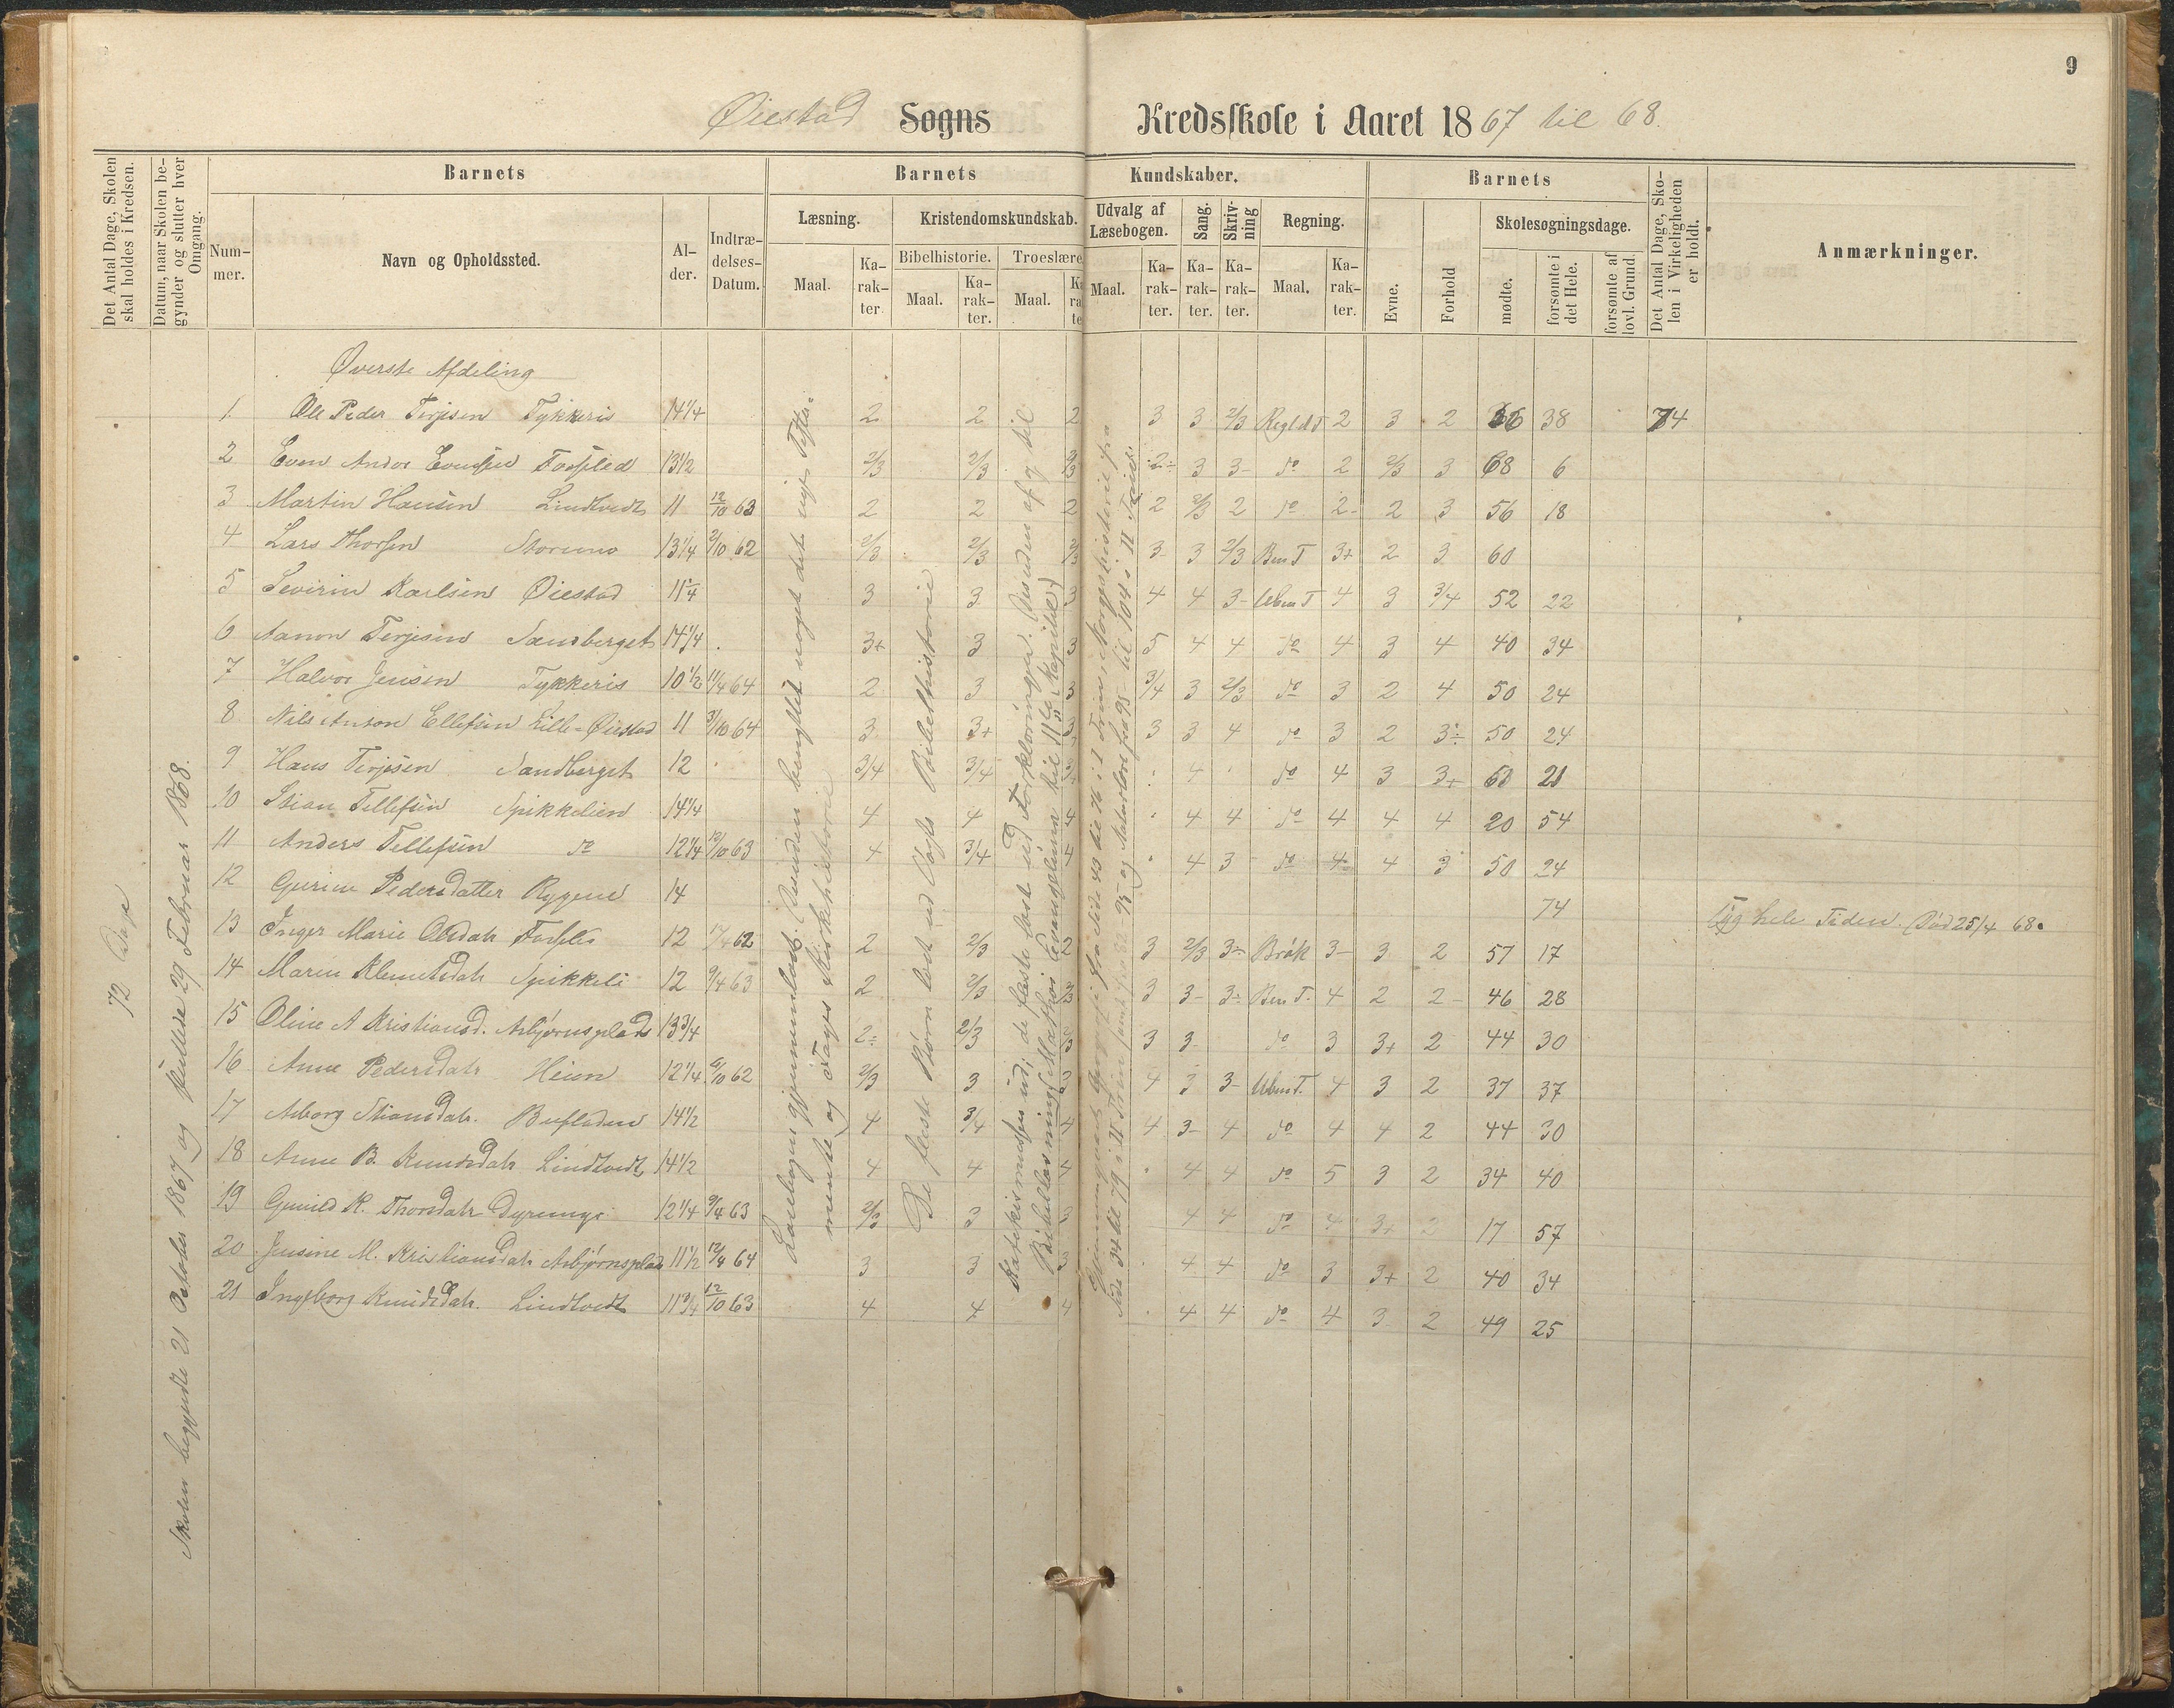 9
Øiestad Sogns Kredsskole i Aaret 1867 til 68.
Det Antal Dage, Skolen skal holdes i Kredsen.
Datum, naar Skolen begynder og slutter hver Omgang.
Barnets
Barnets Kundskaber.
Barnets
Det Antal Dage, Skolen i Virkeligheden er holdt.
Anmærkninger.
Nummer.
Navn og Opholdssted.
Alder.
Indtrædelses-Datum.
Læsning.
Kristendomskundskab.
Udvalg af Læsebogen.
Sang.
Skrivning
Regning.
Evne.
Forhold
Skolesøgningsdage.
Bibelhistorie.
Troeslære
Maal.
Karakter.
Maal.
Karakter.
Maal.
Maal.
Karakter.
Karakter.
Karakter.
Maal.
Karakter.
mødte.
forsømte i det Hele.
forsømte af lovl. Grund.
72 Dage
Skolen begyndte 21 October 1867 og sluttede 29 Februar 1868.
Øverste Afdeling
1. Ole Peder Terjesen Tykkeris 14 1/4 2 2 2 3 3 2/3 2 3 2 38 74
2 Even Andor 13 1/2 2/3 2/3 2/3 2÷ 3 3- do 2 2/3 3 68 6
3 Martin Hansen Lindtvedt 11 12/10 63 2 2 2 2 2/3 2 do 2- 2 3 56 18
4 Lars Thorsen 13 1/4 9/10 62 2/3 2/3 2/3 3- 3 2/3 Ben T 3+ 2 3 60
5 Severin Karlsen Øiestad 11 1/4 3 3 3 4 4 3- Uben T 4 3 3/4 52 22
6 Aanon Terjesen Sandberget 14 1/4 3+ 3 3 5 4 4 do 4 3 4 40 34
7 Halvor Jensen Tykkeris 10 1/2 11/4 64 2 3 3 3/4 3 2/3 do 3 2 4 50 24
8. Nils Anton Ellefsen Lille-Øiestad 11 3/10 64 3 3+ 3 3 3 4 do 3 2 3÷ 50 24
9 Hans Terjesen Sandberget 12 3/4 3/4 4 do 4 3 3+
10 Stian Tellefsen Spikkelien 14 1/4 4 4 4 4 4 do 4 4 4 20 54
11 Anders Tellefsen do 12 1/4 12/10 63 4 3/4 4 4 3 do 4 4 3 50 24
12 Gurine Pedersdatter Rygene 14 74 Syg hele Tiden. Død 25/4 68.
13 Inger Marie 12 62 2 2/3 2 3 2/3 3- Brøk 3- 3 2 57 17
14 Maren Klemetsdatr Spikkeli 12 9/4 63 2 2/3 2/3 3 3- 3÷ Ben T. 4 2 2- 46 28
15 Oline A Kristiansd. Asbjørnsplads 13 3/4 2÷ 2/3 3 3 3- do 3 3+ 2 44 30
16 Anne Pedersdatr Heien 12 1/4 62 2/3 3 3 4 3 3- Uben T. 4 3 2 37 37
17 Asborg Stiansdatr. 14 1/2 4 3/4 4 4 3- 4 do 4 4 2 44 30
18 Anne B. Knudsdatr Lindtvedt 14 1/2 4 4 4 4 4 do 5 3 2 34 40
19 Gunild K. Thorsdatr 12 1/4 9/4 63 2/3 3 3 4 4 do 4 3+ 2 17 57
20 Jensine M. Kristiansdatr Asbjørnsplads 11 1/2 12/4 64 3 3 3 4 4 do 3 3+ 2 40 34
21 Ingeborg Knudsdatr. Lindtvedt 11 3/4 12/10 63 4 4 4 4 4 do 4 3 2 49 25
Læsebogen gjennemlæst. Desuden benyttet noget det nye Testamente og Vogts Kirkehistorie
De fleste Børn læst ud Vogts Bibelhistorie
Katekismusen ud; de fleste læst ud Forklaringen. Desuden af og til
Bibellæsning (Mathæi Evangelium til 11te Kapitel)